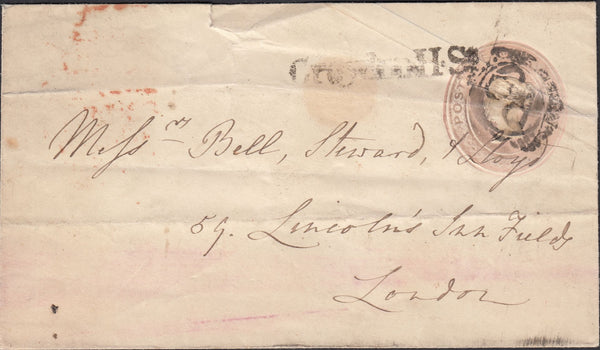 Croydon H.S
POST
Mess^rs Bell, Steward, & Lloyd
59. Lincoln's Inn Fields
London